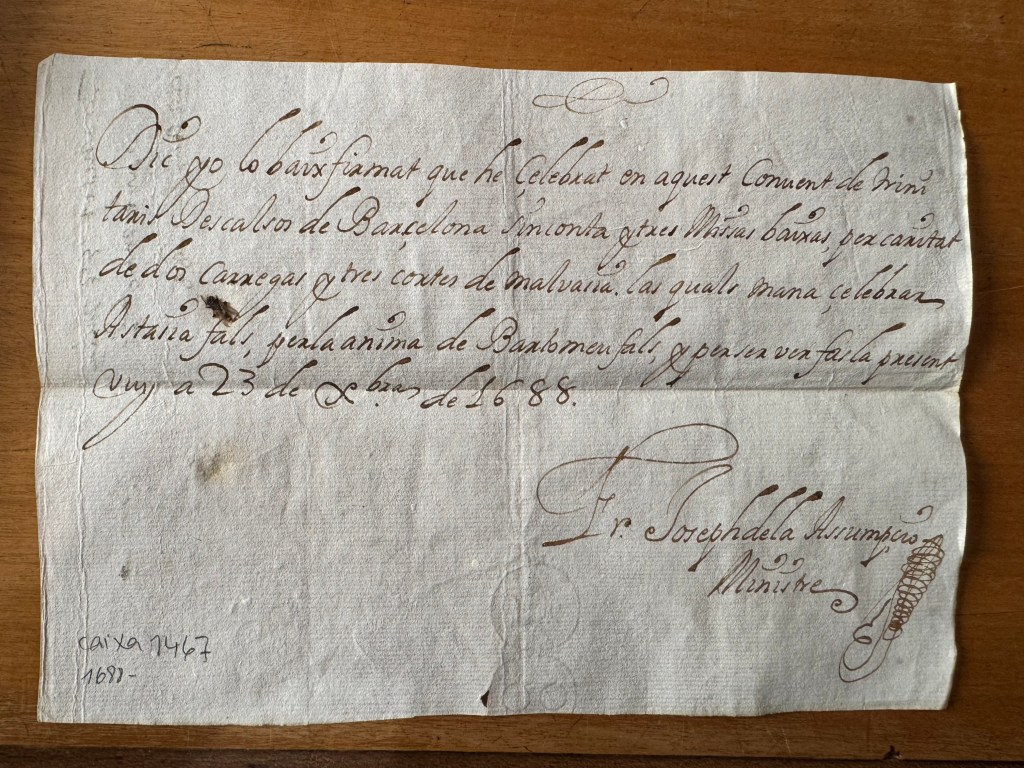 Dic yo lo baix firmat que he çelebrat en aquest Conuent de Trini
taris Descalsos de Barçelona sinconta y tres Missas baixas, per caritat
de dos Carregas y tres cortes de malvasia. las quals mana çelebrar
Astasia fals, per la anima de Bartomeu fals, y per ser ver fas la present
vuy a 23 de Xbra de 1688.
Fr. Joseph de la Assumpçio
Ministre
caixa 1467
1688-